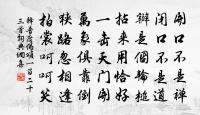 釋普度偈頌一百二十
三首詞典網書
開口不是禪
閉口不是道
是個
拈來用恰好
一擊天門開
萬象俱靠倒
狹路忽相逢
枯棠呵呵笑